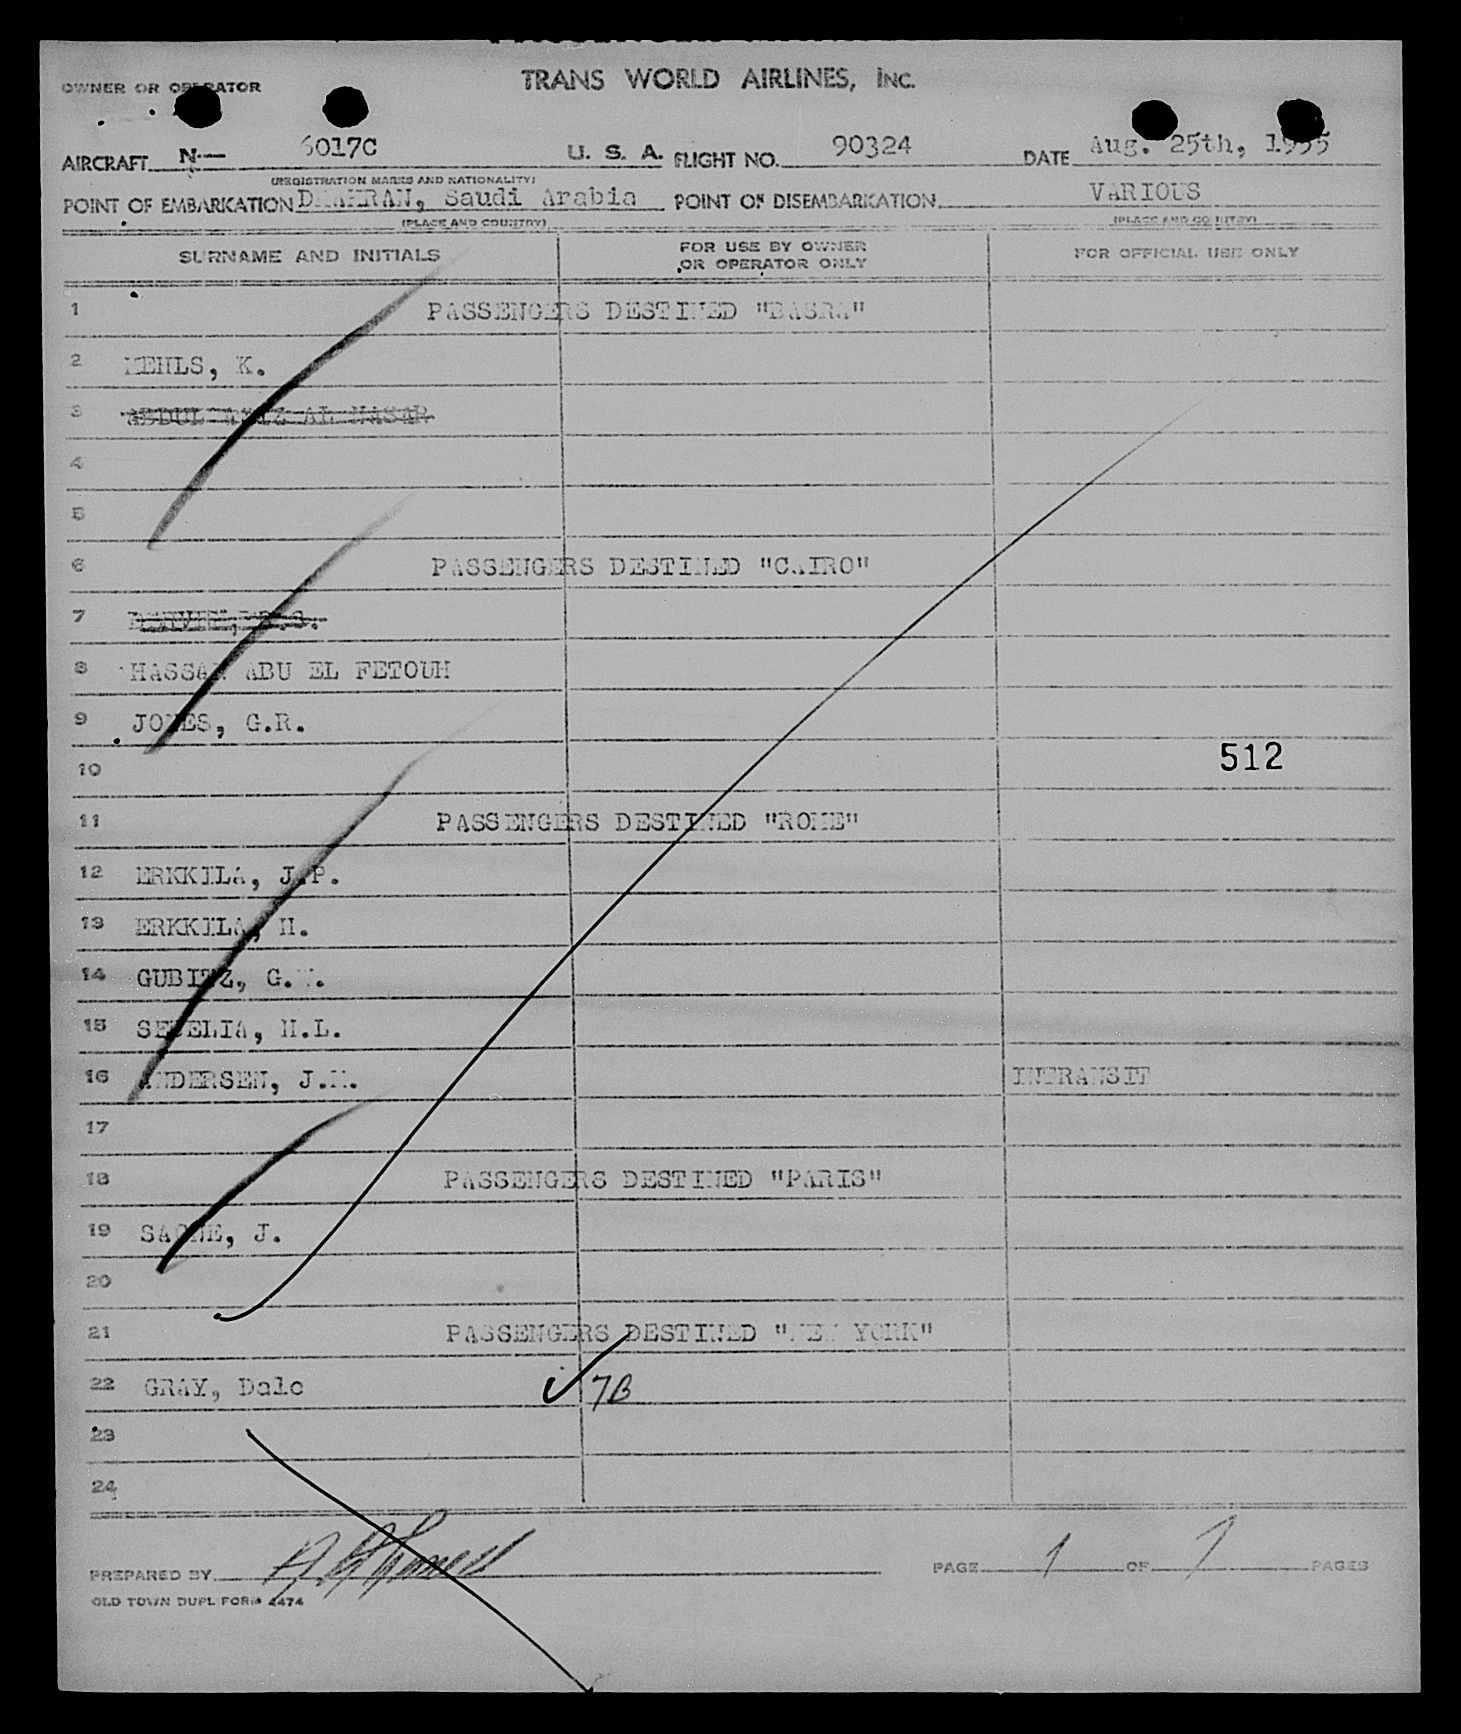 TRANS WORLD AIRLINES, INC.
OWNER OR OPERATOR
AIRCRAFT N— 6017C U. S. A. FLIGHT NO. 90324 DATE Aug. 25th, 1955
(REGISTRATION MARKS AND NATIONALITY)
POINT OF EMBARKATION DHAHRAN, Saudi Arabia POINT OF DISEMBARKATION VARIOUS
(PLACE AND COUNTRY) (PLACE AND COUNTRY)
SURNAME AND INITIALS FOR USE BY OWNER OR OPERATOR ONLY FOR OFFICIAL USE ONLY
1 PASSENGERS DESTINED "BASRA"
2 MEHLS, K.
3 ABDUL AZIZ AL NASAR
4
5
6 PASSENGERS DESTINED "CAIRO"
7
8 HASSAN ABU EL FETOUH
9 JONES, G.R.
10 512
11 PASSENGERS DESTINED "ROME"
12 ERKKILA, J.P.
13 ERKKILA, H.
14 GUBITZ, G.
15 H.L.
16 ANDERSEN, J.M. INTRANSIT
17
18 PASSENGERS DESTINED "PARIS"
19 J.
20
21 PASSENGERS DESTINED "NEW YORK"
22 GRAY, Dale ✓ 7B
23
24
PREPARED BY PAGE 1 OF 7 PAGES
OLD TOWN DUPL FORM 4474